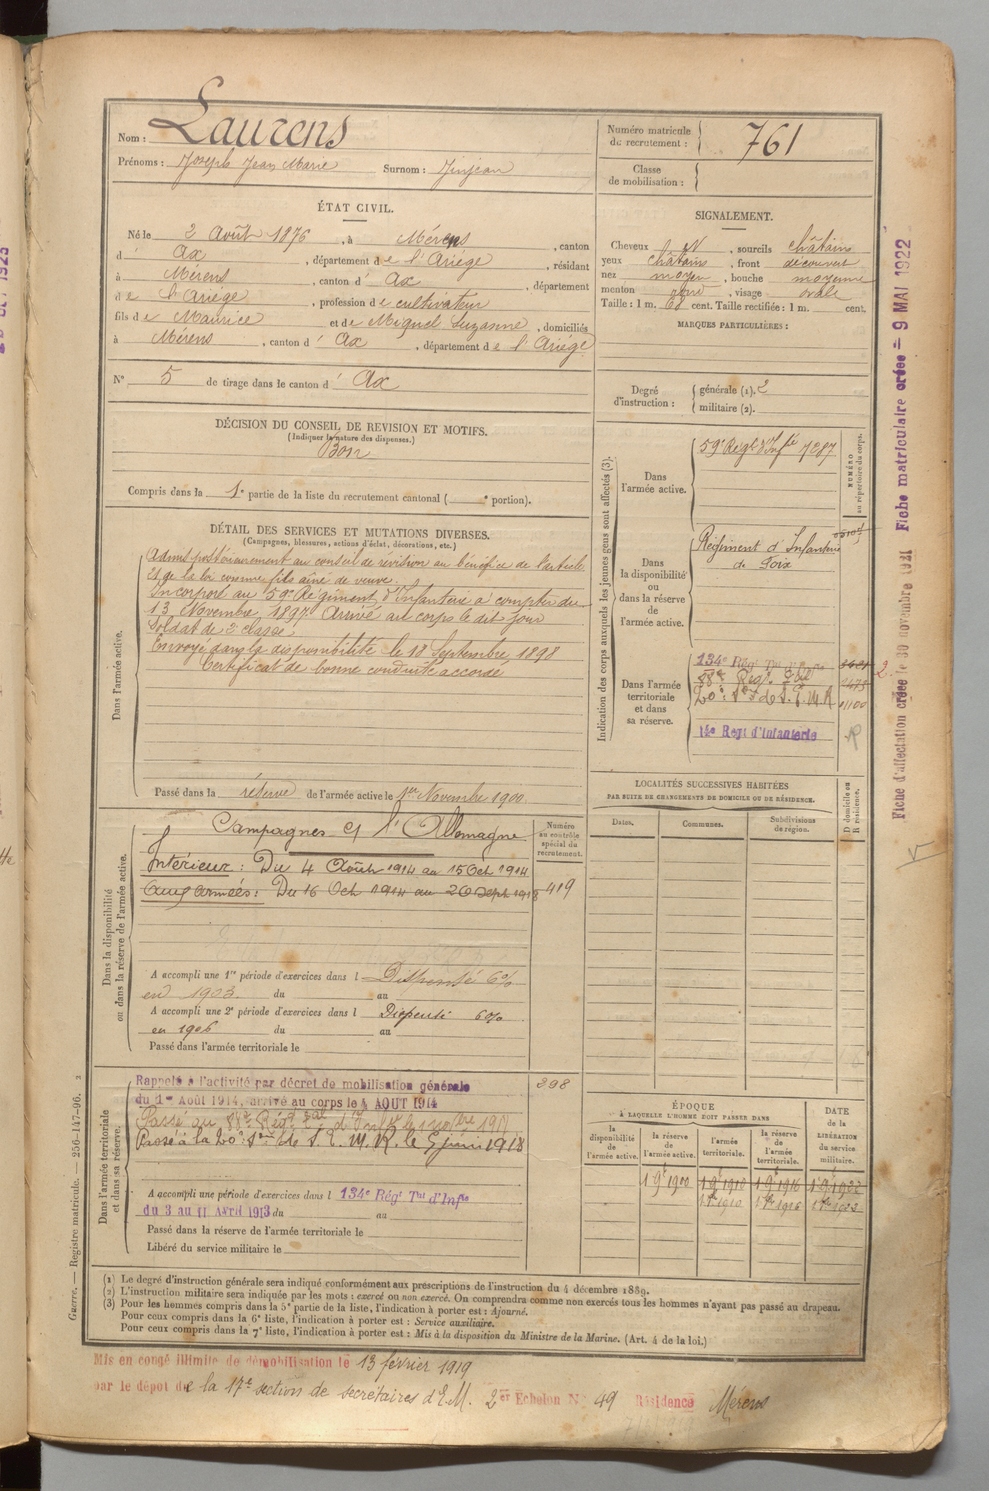 Nom : Laurens
Prénoms : Joseph Jean Marie Surnom : Jinjean
ÉTAT CIVIL.
Né le 2 Août 1876, à Mérens, canton
d' Ax, département de l'Ariège, résidant
à Mérens, canton d' Ax, département
de l'Ariège, profession de cultivateur
fils de Maurice et de Miquel Suzanne, domiciliés
à Mérens, canton d' Ax, département de l'Ariége
N° 5 de tirage dans le canton d' Ax
DÉCISION DU CONSEIL DE REVISION ET MOTIFS.
(Indiquer la nature des dispenses.)
Bon
Compris dans la 1e partie de la liste du recrutement cantonal ( e portion).
DÉTAIL DES SERVICES ET MUTATIONS DIVERSES.
(Campagnes, blessures, actions d'éclat, décorations, etc.)
Dans l'armée active.
Admis postérieurement au conseil de révision au bénéfice de l'article
de la loi comme fils aîné de veuve.
Incorporé au 59e Régiment d'Infanterie à compter du
13 Novembre 1897 Arrivé au corps le dit jour
Soldat de 2e classe
Envoyé dans la disponibilité le 18 Septembre 1898
Certificat de bonne conduite accordé
Passé dans la réserve de l'armée active le 1er Novembre 1900
Dans la disponibilité
ou dans la réserve de l'armée active.
Numéro
au contrôle
spécial du
recrutement.
Campagnes c/ l'Allemagne
Intérieur : Du 4 Août 1914 au 15 Oct 1914
Aux armées : Du 16 Oct 1914 au 20 Sept 1918
419
A accompli une 1re période d'exercices dans l Dispensé 6%
en 1903 du au
A accompli une 2e période d'exercices dans l Dispensé 6%
en 1906 du au
Passé dans l'armée territoriale le
Dans l'armée territoriale
et dans sa réserve.
Rappelé à l'activité par décret de mobilisation générale
398
du 1er Août 1914, arrivé au corps le 4 AOUT 1914
Passé au
Passé à la 20e Son de S. E. M. R. le 5 juin 1918
A accompli une période d'exercices dans l 134e Régt Tal d'Infie
du 3 au 11 Avril 1913 du au
Passé dans la réserve de l'armée territoriale le
Libéré du service militaire le
Numéro matricule
du recrutement : 761
Classe
de mobilisation :
SIGNALEMENT.
Cheveux N, sourcils châtains
yeux châtains, front découvert
nez moyen, bouche moyenne
menton rond, visage ovale
Taille : 1 m. 68 cent. Taille rectifiée : 1 m. cent.
MARQUES PARTICULIÈRES :
Degré
d'instruction :
générale (1). 2
militaire (2).
Indication des corps auxquels les jeunes gens sont affectés (3).
NUMÉRO
au répertoire du corps.
Dans
l'armée active.
59e Régt d'Infie 7287
Dans
la disponibilité
ou
dans la réserve
de
l'armée active.
Régiment d'Infanterie
de Foix
Dans l'armée
territoriale
et dans
sa réserve.
134e Régt Tal d'Infie
20e Son de S. E. M. R
01100
14e Régt d'Infanterie
LOCALITÉS SUCCESSIVES HABITÉES
PAR SUITE DE CHANGEMENTS DE DOMICILE OU DE RÉSIDENCE.
D domicile ou
R résidence.
Dates. Communes. Subdivisions
de région.
ÉPOQUE
À LAQUELLE L'HOMME DOIT PASSER DANS
DATE
DE LA
LIBÉRATION
du service
militaire.
la
disponibilité
de
l'armée active.
la réserve
de
l'armée active.
l'armée
territoriale.
la réserve
de
l'armée
territoriale.
1 9e 1900 1 9e 1910 1 9e 1916 1 9e 1922
1 9re 1910 1 9re 1916 1 9re 1922
(1) Le degré d'instruction générale sera indiqué conformément aux prescriptions de l'instruction du 4 décembre 1889.
(2) L'instruction militaire sera indiquée par les mots : exercé ou non exercé. On comprendra comme non exercés tous les hommes n'ayant pas passé au drapeau.
(3) Pour les hommes compris dans la 5e partie de la liste, l'indication à porter est : Ajourné.
Pour ceux compris dans la 6e liste, l'indication à porter est : Service auxiliaire.
Pour ceux compris dans la 7e liste, l'indication à porter est : Mis à la disposition du Ministre de la Marine. (Art. 4 de la loi.)
Mis en congé illimité de démobilisation le 13 février 1919
par le dépôt de la 17e section de secrétaires d'E.M. 2er Echelon N° 49 Résidence Mérens
Guerre. — Registre matricule. — 256-147-96.
Fiche d'affectation créée le 30 novembre 1921 Fiche matriculaire créée = 9 MAI 1922